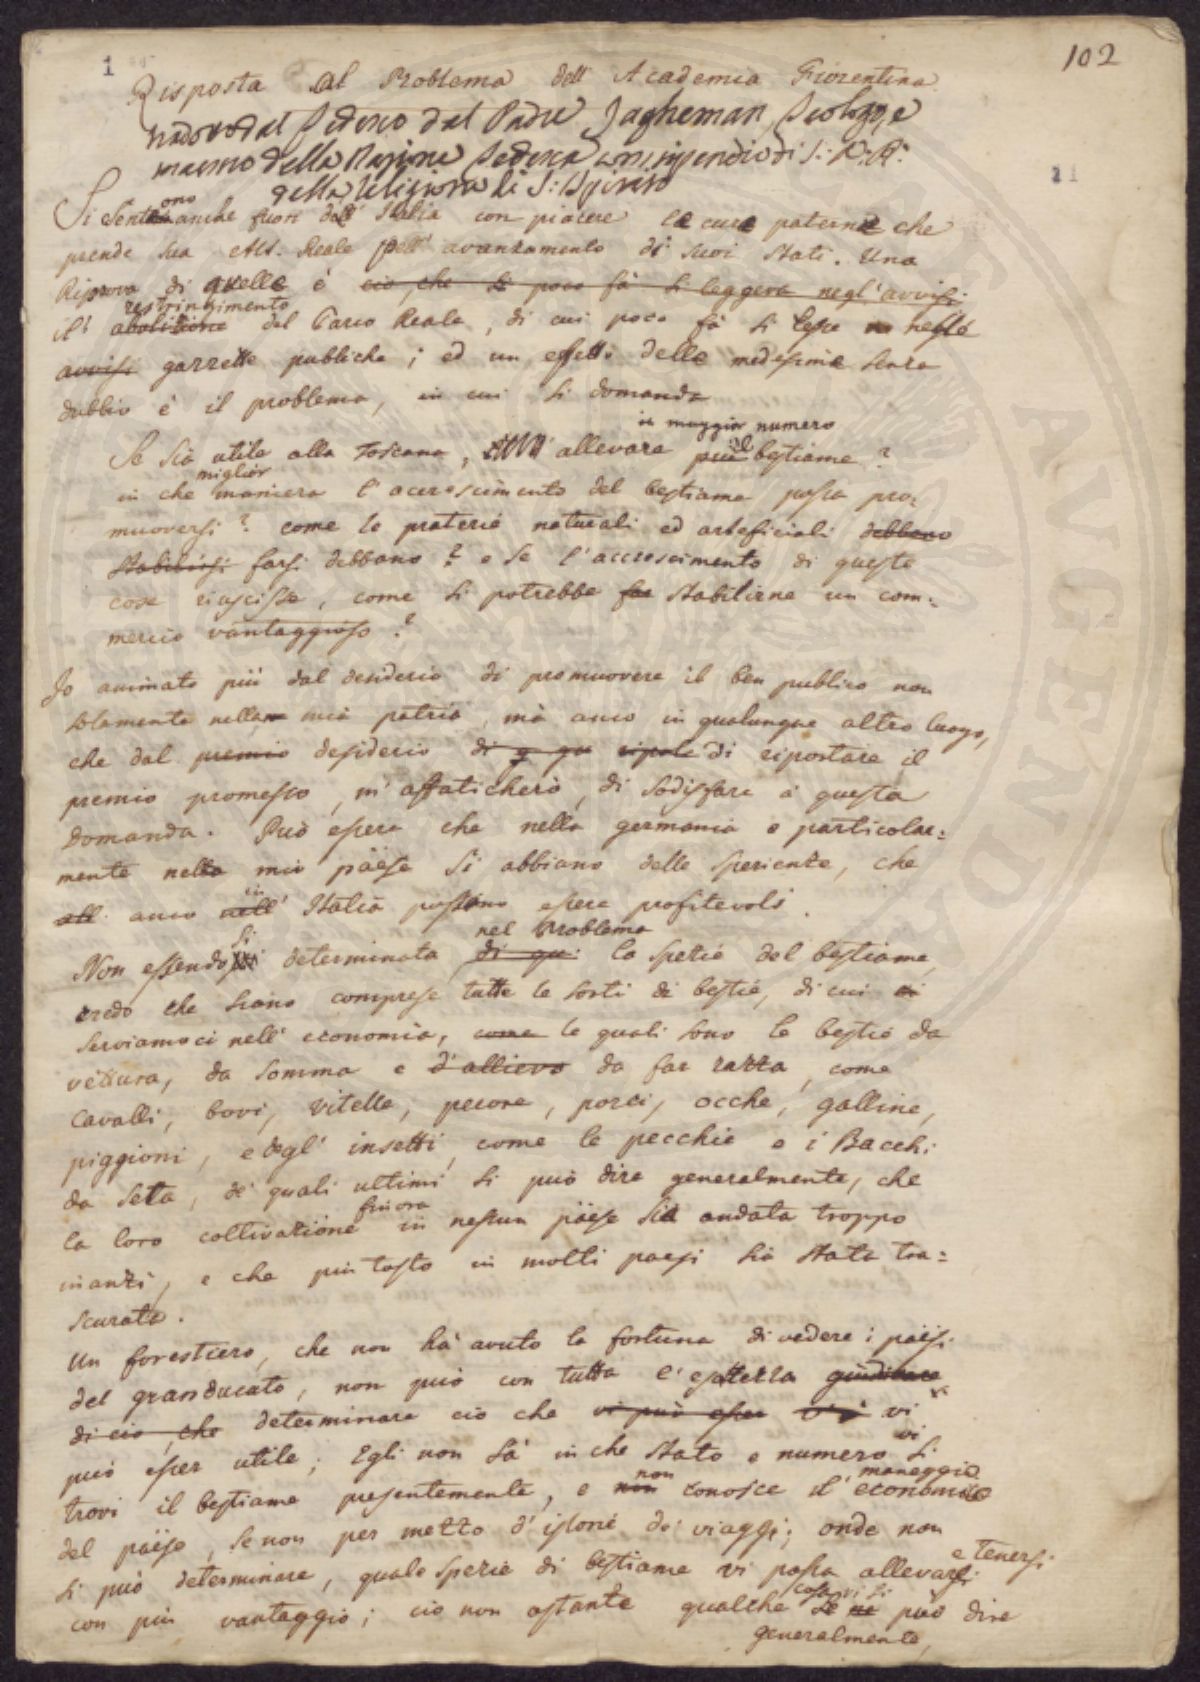 1
102
11
Risposta al Problema dell' Academia Fiorentina
tradotto dal Tedesco dal Padre Jagheman, Teologo, e
membro della Nazione Tedesca con stipendio di S: A: R:
nella Religione di S: Spirito
Si sentono anche fuori dell' Italia con piacere le cure paterne che
prende sua Alt. Reale dell' avanzamento di suoi Stati. Una
Riprova di quelle è cio, che si poco fà si leggeva negl' avvisi
restringimento
il' abolizione del Parco Reale, di cui poco fà si lesse ne nelle
avvisi gazzette publiche; ed un effetto delle medesime senza
dubbio è il problema, in cui si domanda
in maggior numero
Se sia utile alla Toscana, allevare più il bestiame?
miglior
in che maniera l'acerescimento del bestiame possa pro=
muoversi? come le praterie naturali ed arteficiali debbano
stabilirsi farsi debbano? e se l'accrescimento di queste
cose riuscisse, come si potrebbe far stabilirne un com=
mercio vantaggioso?
Jo animato più dal desiderio di promuovere il ben publico non
solamente nella mia patria, mà anco in qualunque altro luogo,
che dal premio desiderio di riportare il
premio promesso, m' affaticherò, di sodisfare à questa
domanda. Può essere che nella germania e particolar=
mente nella mio päese si abbiano delle sperienze, che
in
all anco nell' Italia possono essere profitevoli.
si nel Problema
Non essendo determinata di qu la spezie del bestiame,
credo che siano comprese tutte le sorti di bestie, di cui ci
serviamoci nell' economia, come le quali sono le bestie da
vettura, da somma e d'allievo da far razza, come
Cavalli, bovi, vitelle, pecore, porci, ocche, galline,
piggioni, e degl' insetti, come le pecchie e i Bacchi
da seta, de' quali ultimi si può dire generalmente, che
finora
la loro coltivazione in nessun päese sia andata troppo
inanzi, e che piu tosto in molti paesi sia stata tra=
scurata.
Un forestiero, che non hà avuto la fortuna di vedere i päesi
del granducato, non può con tutta l'esattezza giudicare
di cio, che determinare ciò che vi può esser vi
può esser utile; Egli non sà in che stato e numero vi si
non maneggio
trovi il bestiame presentemente, e non conosce il' economia
del päese, se non per mezzo d'istorie de' viaggi; onde non
si può determinare, quale spezie di bestiame vi possa allevarsi e tenersi
cosa vi si
con più vantaggio; ciò non ostante qualche se ne può dire
generalmente,